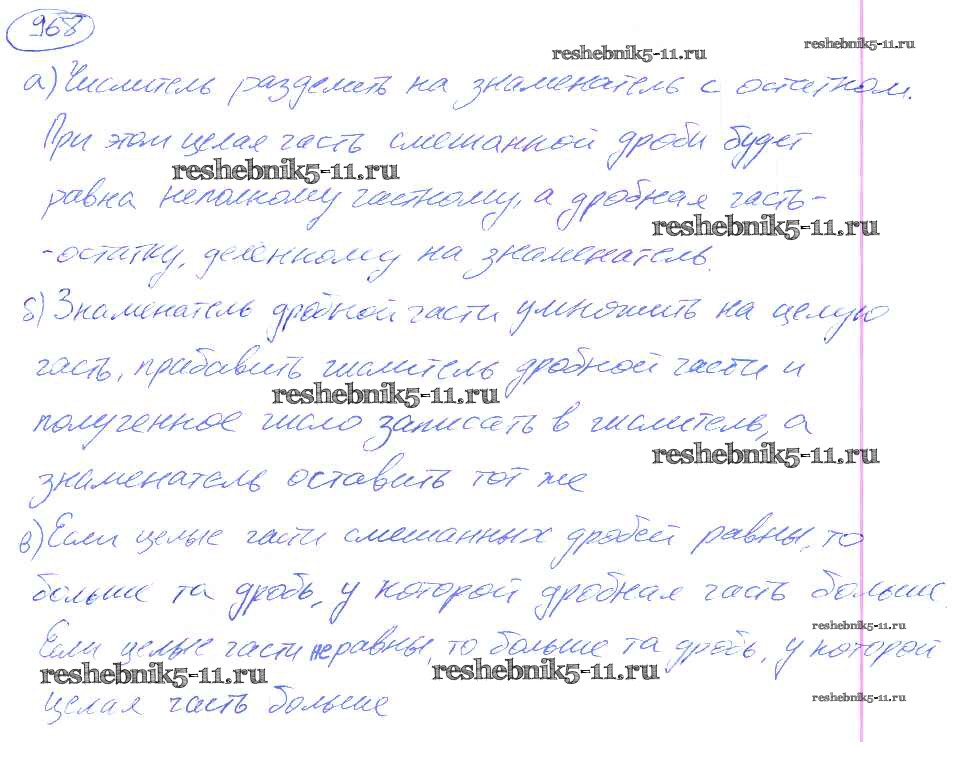 968
reshebnik5-11.ru
reshebnik5-11.ru
а) Числитель разделить на знаменатель с остатком.
При этом целая часть смешанной дроби будет
reshebnik5-11.ru
равна неполному частному, а дробная часть-
reshebnik5-11.ru
-остатку, деленному на знаменатель.
б) Знаменатель дробной части умножить на целую
часть, прибавить числитель дробной части и
reshebnik5-11.ru
полученное число записать в числитель, а
reshebnik5-11.ru
знаменатель оставить тот же
в) Если целые части смешанных дробей равны, то
больше та дробь, у которой дробная часть больше.
reshebnik5-11.ru
Если целые части не равны, то больше та дробь, у которой
reshebnik5-11.ru
reshebnik5-11.ru
целая часть больше
reshebnik5-11.ru